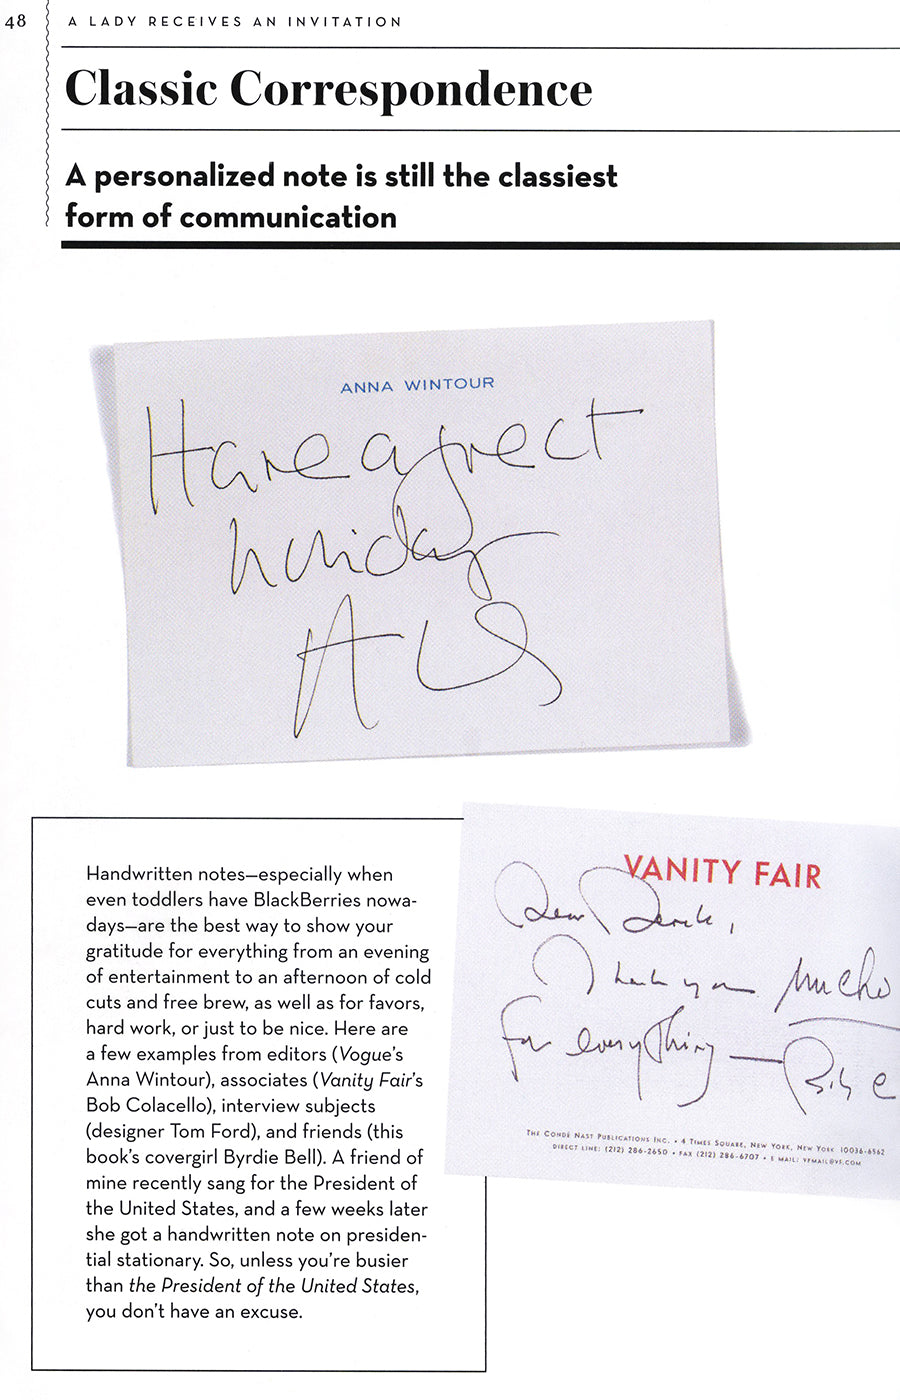 48
A LADY RECEIVES AN INVITATION
Classic Correspondence
A personalized note is still the classiest
form of communication
ANNA WINTOUR
Have a great
holiday
AW
Handwritten notes—especially when
even toddlers have BlackBerries nowa-
days—are the best way to show your
gratitude for everything from an evening
of entertainment to an afternoon of cold
cuts and free brew, as well as for favors,
hard work, or just to be nice. Here are
a few examples from editors (Vogue's
Anna Wintour), associates (Vanity Fair's
Bob Colacello), interview subjects
(designer Tom Ford), and friends (this
book's covergirl Byrdie Bell). A friend of
mine recently sang for the President of
the United States, and a few weeks later
she got a handwritten note on presiden-
tial stationary. So, unless you're busier
than the President of the United States,
you don't have an excuse.
VANITY FAIR
Dear Derek,
Thank you mucho
for everything — Bob C
THE CONDÉ NAST PUBLICATIONS INC. • 4 TIMES SQUARE, NEW YORK, NEW YORK 10036-6562
DIRECT LINE: (212) 286-2650 • FAX (212) 286-6707 • E MAIL: VFMAIL@VF.COM